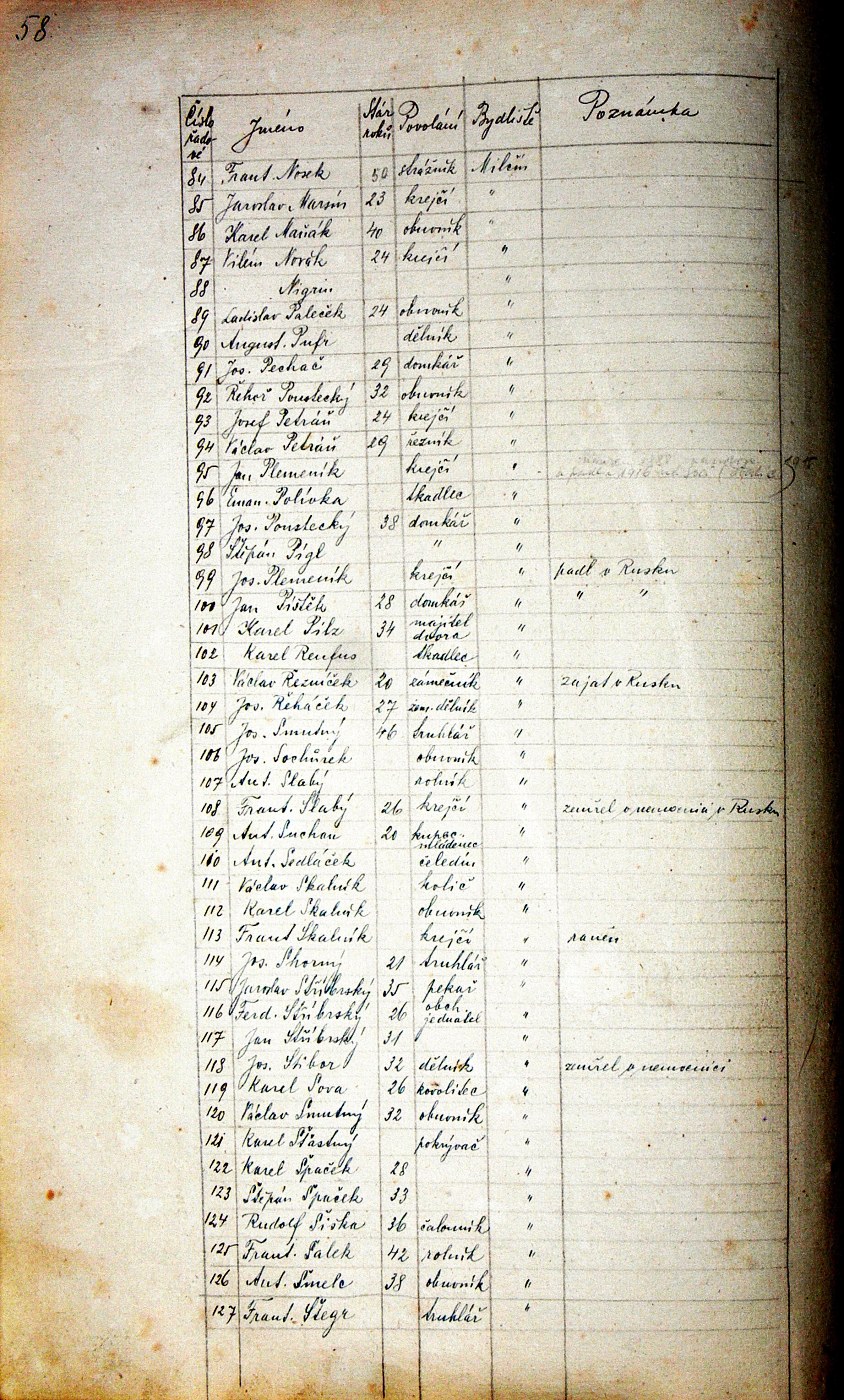 58.
Číslo řadové Jméno Stár roků Povolání Bydliště Poznámka
84 Frant. Nosek 50 strážník Milčín
85 Jaroslav Marsín 23 krejčí "
86 Karel Maňák 40 obuvník "
87 Vilém Novák 24 krejčí "
88 Nigrin "
89 Ladislav Paleček 24 obuvník "
90 August. Pufr dělník "
91 Jos. Pechač 29 domkář "
92 Řehoř Poustecký 32 obuvník "
93 Josef Petráň 24 krejčí "
94 Václav Petráň 29 řezník "
95 Jan Plemeník krejčí "
96 Eman. Polívka tkadlec "
97 Jos. Poustecký 38 domkář "
98 Štěpán Pígl " "
99 Jos. Plemeník krejčí " padl v Rusku
100 Jan Pištěk 28 domkář " " "
101 Karel Pilz 34 majitel dvora "
102 Karel Renfus tkadlec "
103 Václav Řezníček 20 zámečník " zajat v Rusku
104 Jos. Řeháček 27 zem. dělník "
105 Jos. Smutný 46 truhlář "
106 Jos. Sochůrek obuvník "
107 Ant. Slabý rolník "
108 Frant. Slabý 26 krejčí " zemřel v nemocnici v Rusku
109 Ant. Suchan 20 kupec. mládenec "
110 Ant. Sedláček čeledín "
111 Václav Skalník holič "
112 Karel Skalník obuvník "
113 Frant Skalník krejčí " raněn
114 Jos. Skorný 21 truhlář "
115 Jaroslav Stříbrský 35 pekař "
116 Ferd. Stříbrský 26 obch. jednatel "
117 Jan Stříbrský 31 "
118 Jos. Stibor 32 dělník " zemřel v nemocnici
119 Karel Sova 26 kovolitec "
120 Václav Smutný 32 obuvník "
121 Karel Šťastný pokrývač "
122 Karel Špaček 28 "
123 Štěpán Špaček 33 "
124 Rudolf Šiška 36 čalouník "
125 Frant. Šálek 42 rolník "
126 Ant. Šmelc 38 obuvník "
127 Frant. Štegr truhlář "